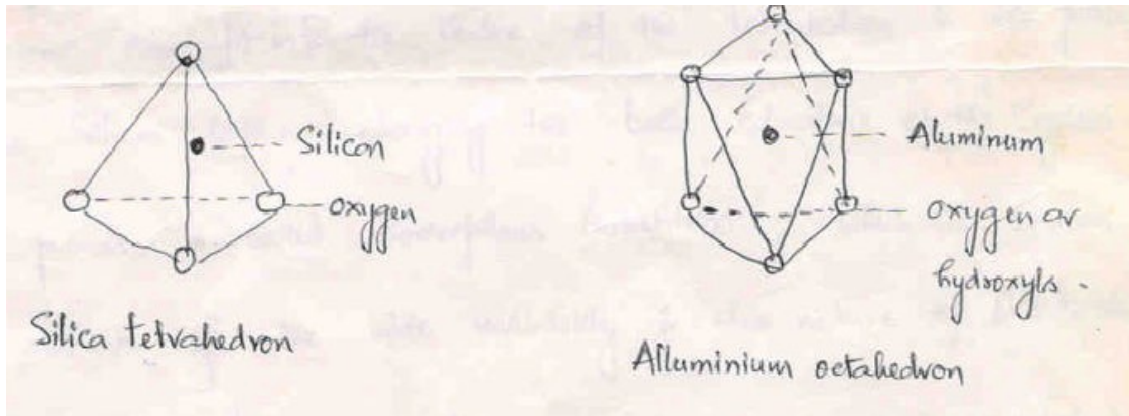 Silicon
oxygen
Silica tetrahedron
Aluminum
oxygen or
hydroxyls.
Alluminium octahedron